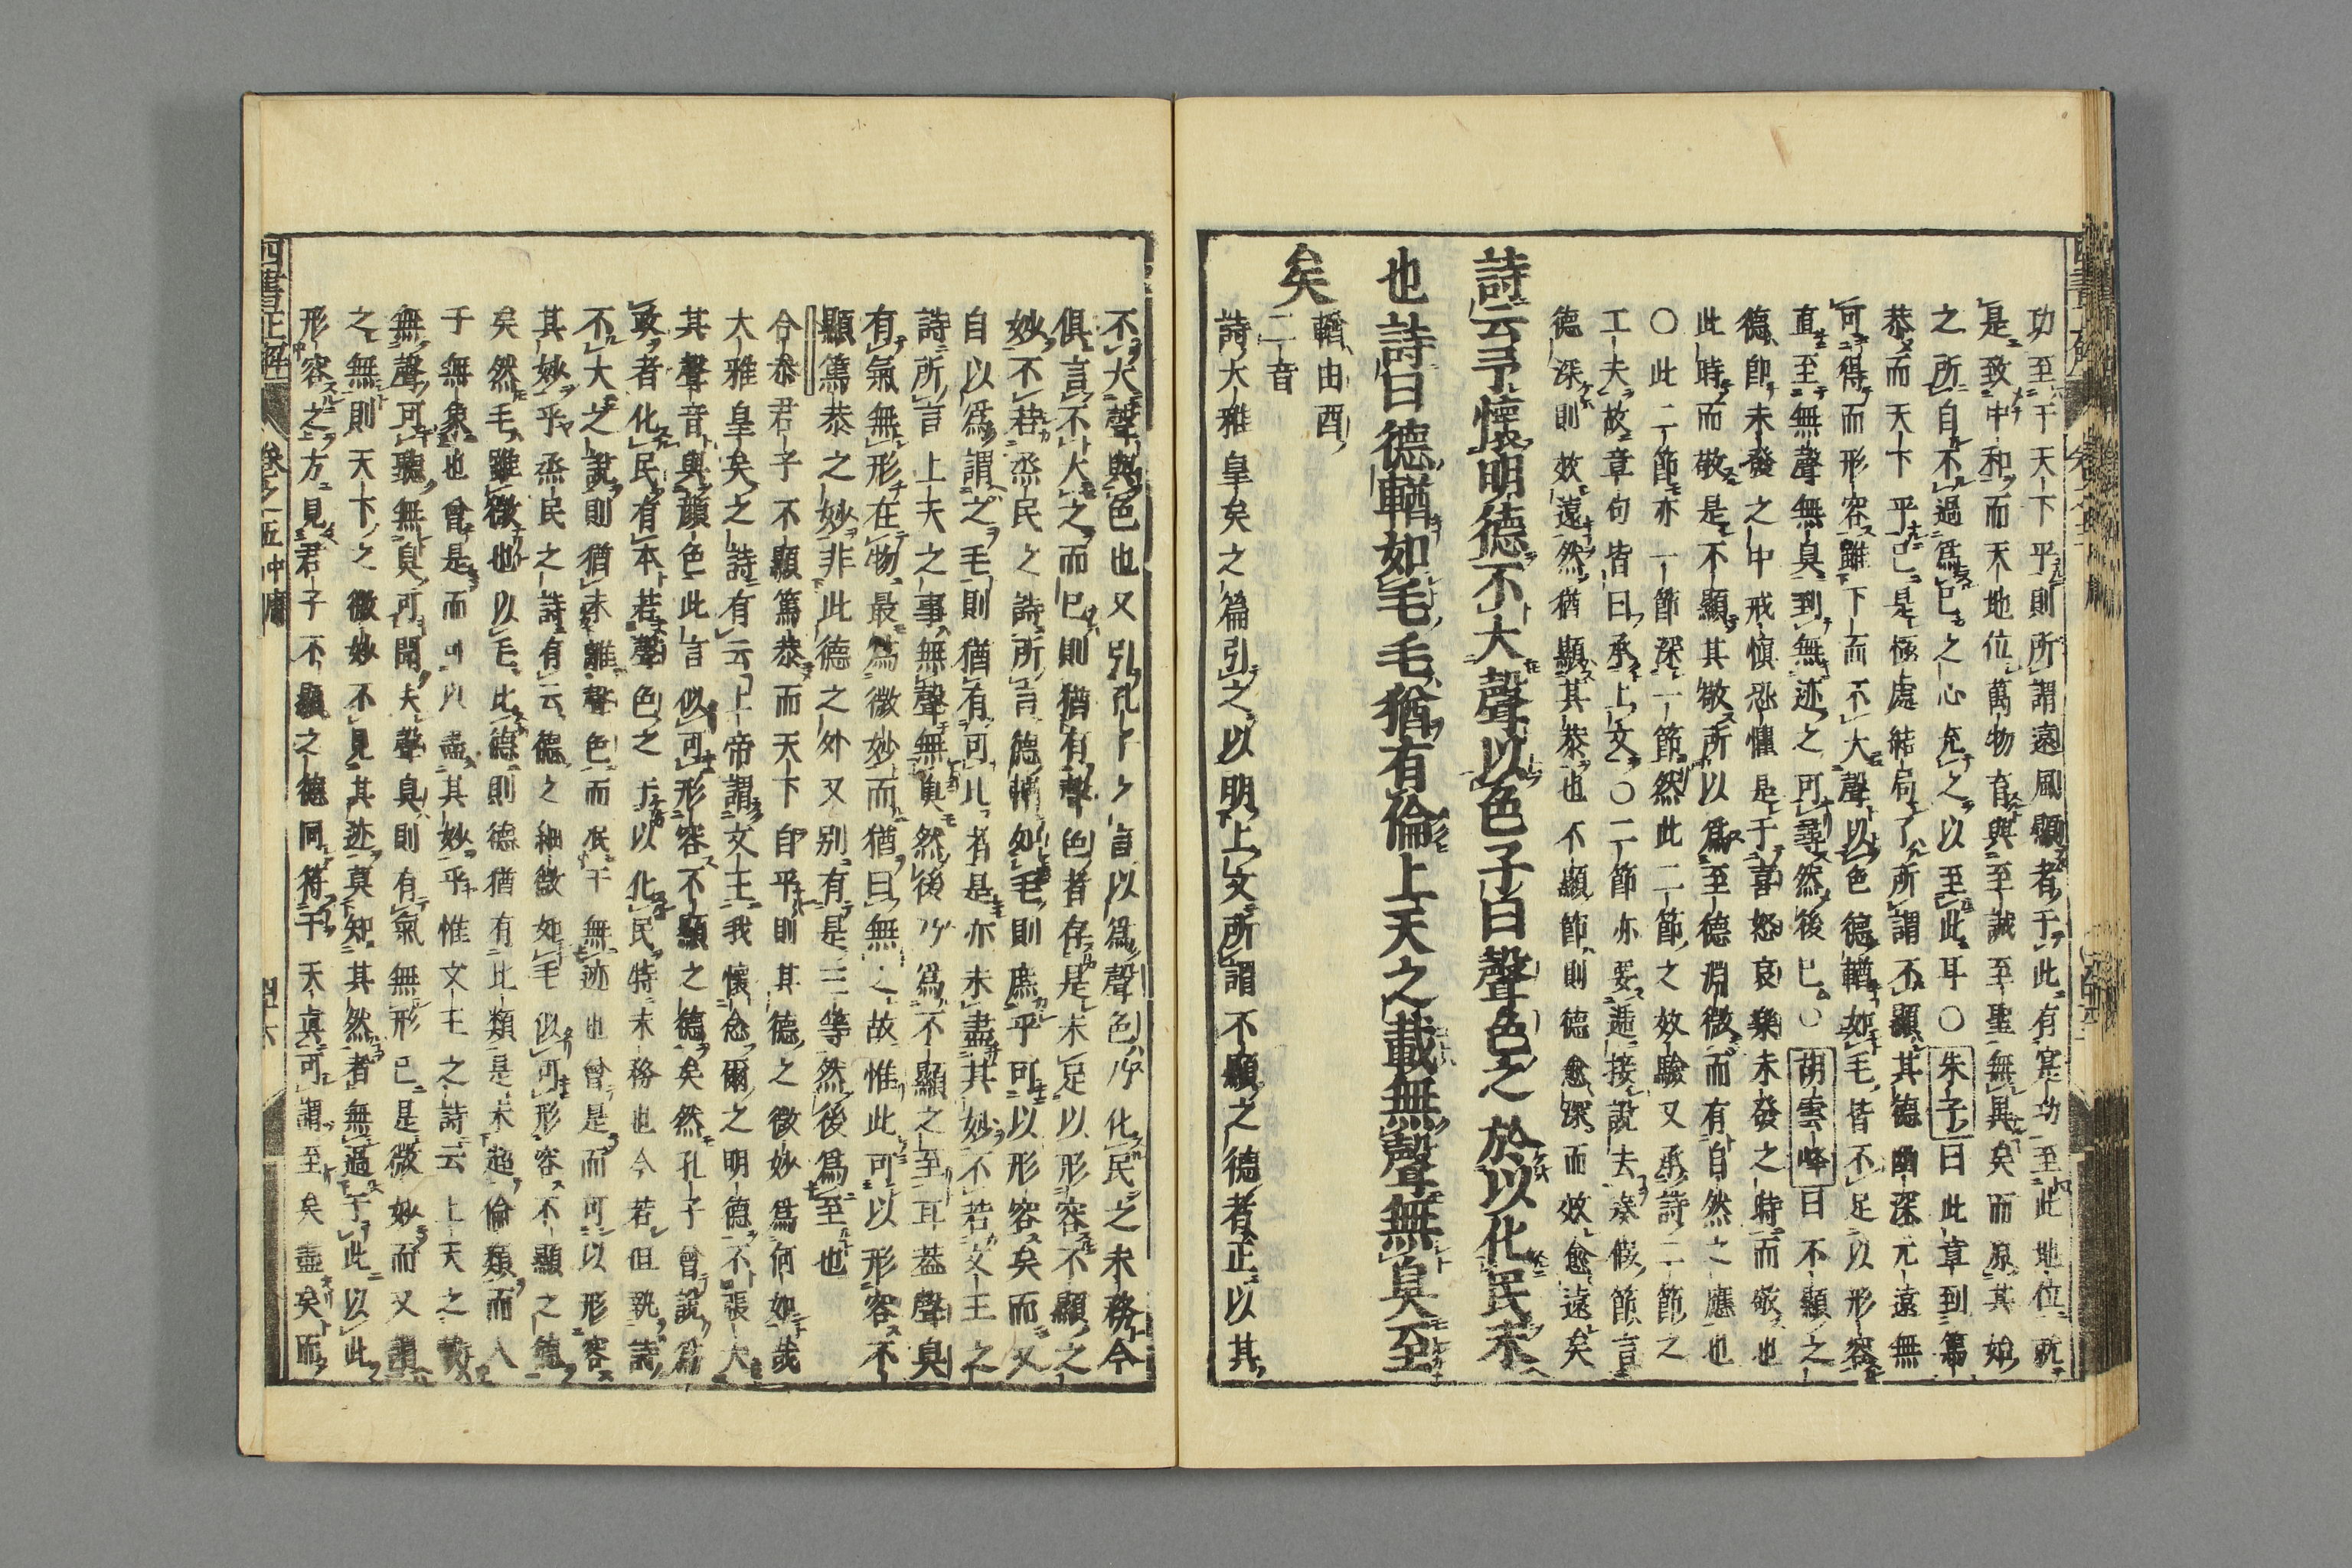 功至于天下平則所謂遠風顯者于此有寔功至此地位就
是致中和而天地位萬物育與至誠至聖無異矣而原其始
之所自不過爲已之心充之以至此耳○朱子曰此章到篤
恭而天下平已是極處結局了所謂不顯其德幽深元遠無
可得而形容雖下而不大聲以色德輶如毛皆不足以形容
直至無聲無臭到無迹之可尋然後已○胡雲峰曰不顯之
德卽未發之中戒愼恐懼是于喜怒哀樂未發之時而敬也
此時而敬是不顯其敬所以爲至德淵微而有自然之應也
○此二節亦一節深一節然此二節之效驗又承詩二節之
工夫故章句皆曰承上文○二節亦要遞接說去奏假節言
德深則效遠然猶顯其恭也不顯節則德愈深而效愈遠矣
詩云予懷明德不大聲以色子曰聲色之於以化民末
也詩曰德輶如毛毛猶有倫上天之載無聲無臭至
矣
輶由酉
二音
詩大雅皇矣之篇引之以明上文所謂不顯之德者正以其
不大聲與色也又引孔子之言以爲聲色之於化民之末務今
俱言不大之而已則猶有聲色者存是未足以形容不顯之
妙不若烝民之詩所言德輶如毛則庶乎可以形容矣而又
自以爲謂之毛則猶有可比者是亦未盡其妙不若文王之
詩所言上天之事無聲無臭然後乃爲不顯之至耳蓋聲臭
有氣無形在物最爲微妙而猶曰無之故惟此可以形容不
顯篤恭之妙非此德之外又別有是三等然後爲至也
合恭君子不顯篤恭而天下自平則其德之微妙爲何如哉
大雅皇矣之詩有云上帝謂文王我懷念爾之明德不張大
其聲音與顏色此言似可形容不顯之德矣然孔子曾說爲
政者化民有本若聲色之于以化民特末務也今若但執詩
不大之說則猶未離聲色而泯于無迹也曾是而可以形容
其妙乎烝民之詩有云德之細微如毛似可形容不顯之德
矣然毛雖微也以毛比德則德猶有比類是未超倫類而入
于無象也曾是而可以盡其妙乎惟文王之詩云上天之載
無聲可聽無臭可聞夫聲臭則有氣無形已是微妙而又謂
之無則天下之微妙不見其迹眞知其然者無過于此以此
形容之方見君子不顯之德同符于天眞可謂至矣盡矣而
四書正解 卷之五 中庸 四十六